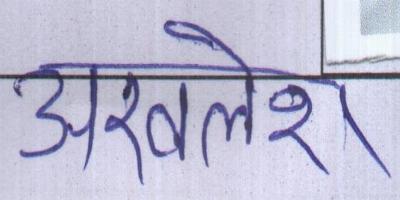 अखलेश